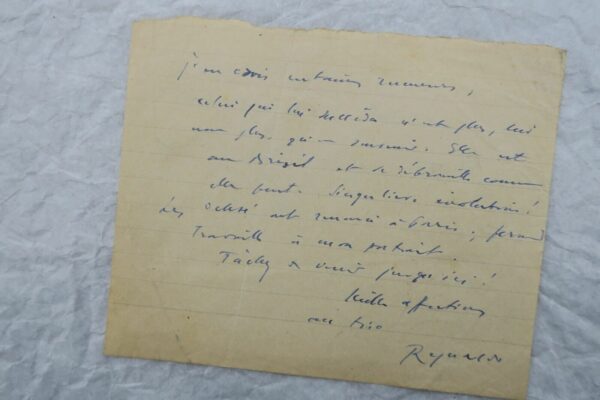 j'en crois certains rumeurs,
celui qui lui succéda n'est plus, lui
non plus, qu'un souvenir. Elle est
au Brésil et se débrouille comme
elle peut. Singulière évolution!
Les sont à Paris; 
travaille à mon portrait.
Tâchez de venir jusqu'ici!
Mille affections
au trio
Reynaldo